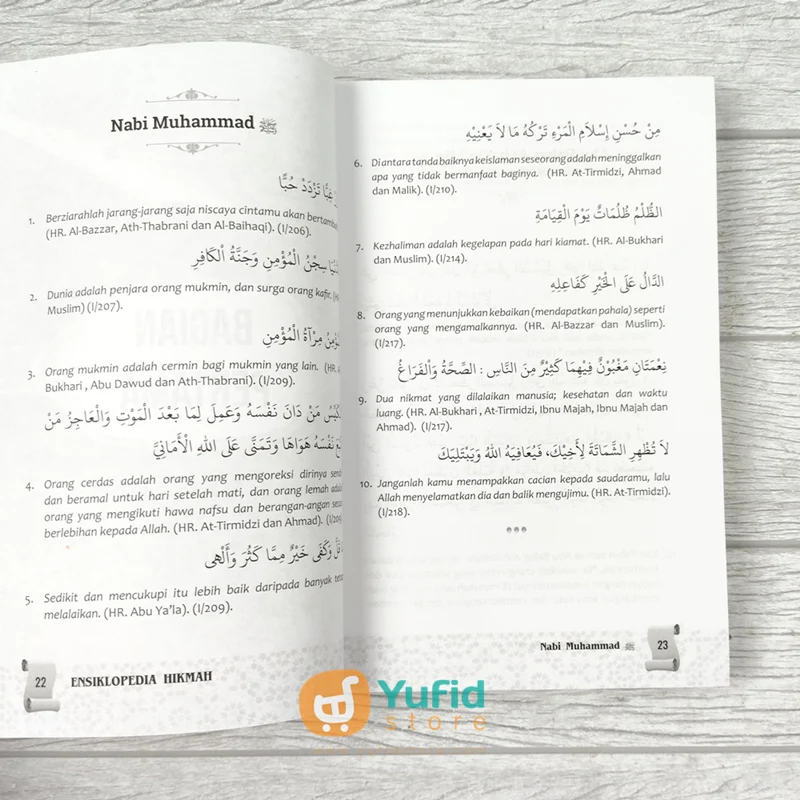 Nabi Muhammad ﷺ
غِبًّا تَزْدَدْ حُبًّا
1. Berziarahlah jarang-jarang saja niscaya cintamu akan
(HR. Al-Bazzar, Ath-Thabrani dan Al-Baihaqi). (I/206).
سِجْنُ الْمُؤْمِنِ وَجَنَّةُ الْكَافِرِ
2. Dunia adalah penjara orang mukmin, dan surga orang kafir.
Muslim) (I/207).
مِرْآةُ الْمُؤْمِنِ
3. Orang mukmin adalah cermin bagi mukmin yang lain. (HR.
Bukhari , Abu Dawud dan Ath-Thabrani). (I/209).
مَنْ دَانَ نَفْسَهُ وَعَمِلَ لِمَا بَعْدَ الْمَوْتِ وَالْعَاجِزُ مَنْ
نَفْسَهُ هَوَاهَا وَتَمَنَّى عَلَى اللهِ الْأَمَانِيَّ
4. Orang cerdas adalah orang yang mengoreksi dirinya
dan beramal untuk hari setelah mati, dan orang lemah
orang yang mengikuti hawa nafsu dan berangan-angan
berlebihan kepada Allah. (HR. At-Tirmidzi dan Ahmad).
قَلَّ وَكَفَى خَيْرٌ مِمَّا كَثُرَ وَأَلْهَى
5. Sedikit dan mencukupi itu lebih baik daripada banyak
melalaikan. (HR. Abu Ya'la). (I/209).
22 ENSIKLOPEDIA HIKMAH
مِنْ حُسْنِ إِسْلَامِ الْمَرْءِ تَرْكُهُ مَا لَا يَعْنِيْهِ
6. Di antara tanda baiknya keislaman seseorang adalah meninggalkan
apa yang tidak bermanfaat baginya. (HR. At-Tirmidzi, Ahmad
dan Malik). (I/210).
الظُّلْمُ ظُلُمَاتٌ يَوْمَ الْقِيَامَةِ
7. Kezhaliman adalah kegelapan pada hari kiamat. (HR. Al-Bukhari
dan Muslim). (I/214).
الدَّالُ عَلَى الْخَيْرِ كَفَاعِلِهِ
8. Orang yang menunjukkan kebaikan (mendapatkan pahala) seperti
orang yang mengamalkannya. (HR. Al-Bazzar dan Muslim).
(I/217).
نِعْمَتَانِ مَغْبُوْنٌ فِيْهِمَا كَثِيْرٌ مِنَ النَّاسِ : الصِّحَّةُ وَالْفَرَاغُ
9. Dua nikmat yang dilalaikan manusia; kesehatan dan waktu
luang. (HR. Al-Bukhari , At-Tirmidzi, Ibnu Majah, Ibnu Majah dan
Ahmad). (I/217).
لَا تُظْهِرِ الشَّمَاتَةَ لِأَخِيْكَ، فَيُعَافِيَهُ اللهُ وَيَبْتَلِيَكَ
10. Janganlah kamu menampakkan cacian kepada saudaramu, lalu
Allah menyelamatkan dia dan balik mengujimu. (HR. At-Tirmidzi).
(I/218).
Nabi Muhammad ﷺ 23
Yufid
store